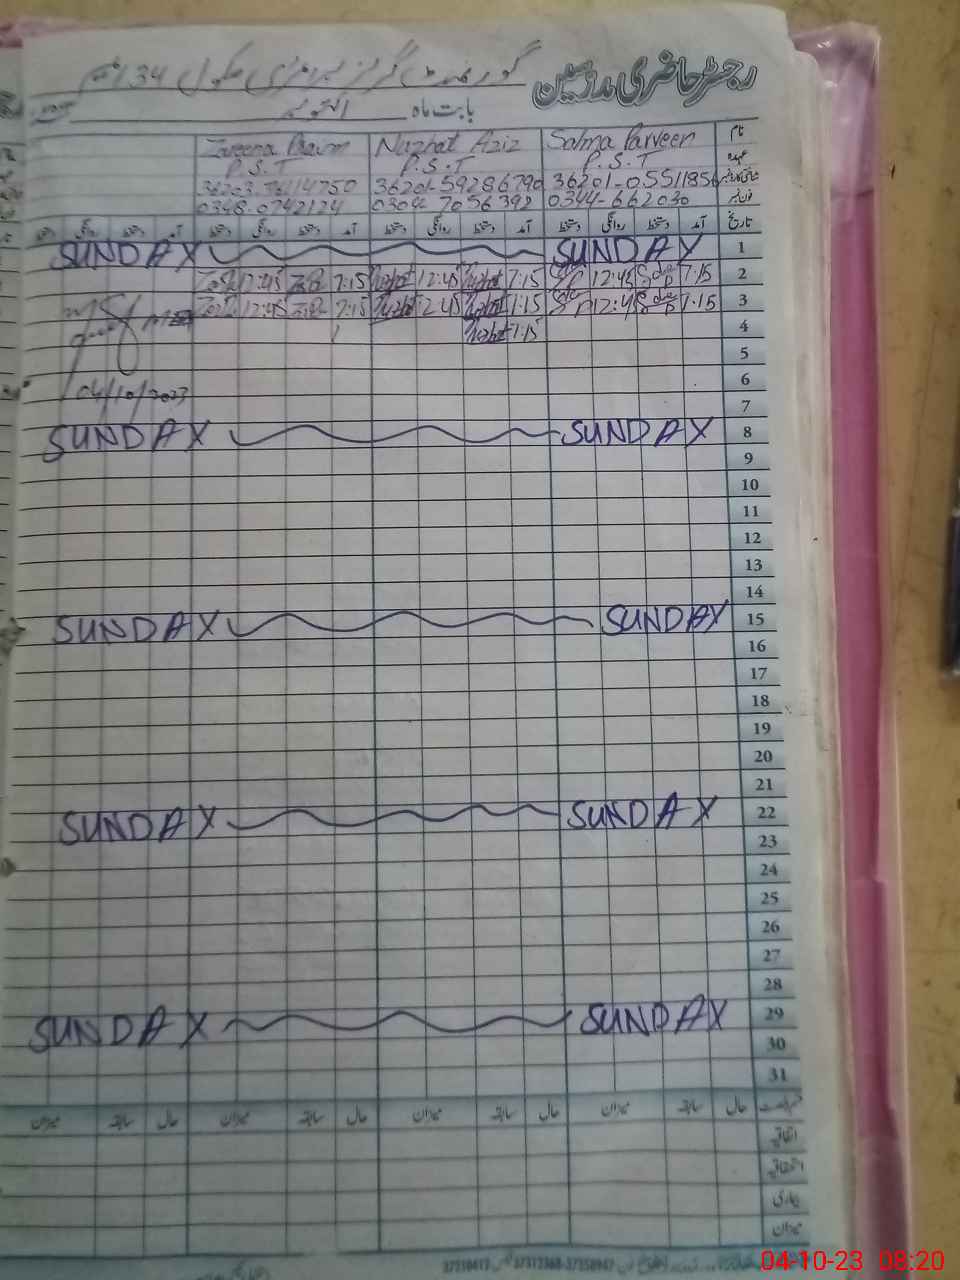 رجسٹر حاضری مدرسین گورنمنٹ گرلز پرائمری سکول 134
بابت ماہ اکتوبر
نام Salma Parveen Nuzhat Aziz Zareena
عہدہ P.S.T P.S.T P.S.T
36201-0551185 36201-59286790
0344-662030 0304 7056392 0348-0742124
تاریخ آمد دستخط روانگی دستخط آمد دستخط روانگی دستخط آمد دستخط روانگی دستخط آمد دستخط روانگی دستخط
1 SUNDAY SUNDAY
2 7:15 12:45 7:15 Nuzhat 12:45 Nuzhat 7:15 12:45
3 7:15 12:45 7:15 Nuzhat 12:45 Nuzhat 7:15 12:45
4 7:15 Nuzhat
5
6
04/10/2023
7
8 SUNDAY SUNDAY
9
10
11
12
13
14
15 SUNDAY SUNDAY
16
17
18
19
20
21
22 SUNDAY SUNDAY
23
24
25
26
27
28
29 SUNDAY SUNDAY
30
31
رخصت حال سابقہ میزان حال سابقہ میزان حال سابقہ میزان حال سابقہ میزان
اتفاقیہ
استحقاقیہ
بیماری
میزان
04-10-23 08:20